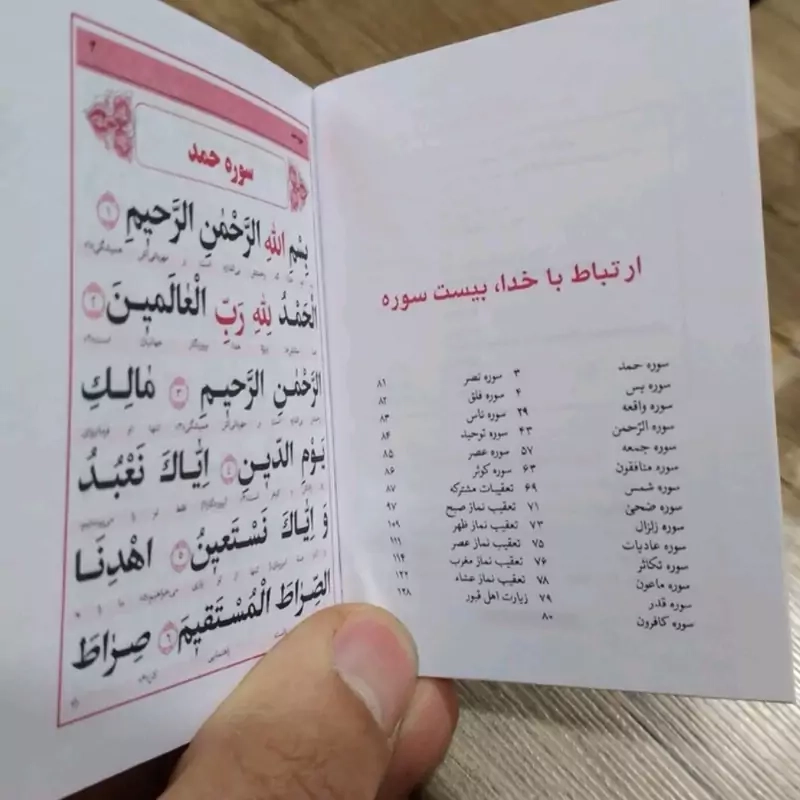 ارتباط با خدا، بیست سوره
سوره حمد ۳ سوره نصر ۸۱
سوره یس ۴ سوره فلق ۸۲
سوره واقعه ۲۹ سوره ناس ۸۳
سوره الرّحمن ۴۳ سوره توحید ۸۴
سوره جمعه ۵۷ سوره عصر ۸۵
سوره منافقون ۶۳ سوره کوثر ۸۶
سوره شمس ۶۹ تعقیبات مشترکه ۸۷
سوره ضحیٰ ۷۱ تعقیب نماز صبح ۹۷
سوره زلزال ۷۳ تعقیب نماز ظهر ۱۰۹
سوره عادیات ۷۵ تعقیب نماز عصر ۱۱۱
سوره تکاثر ۷۶ تعقیب نماز مغرب ۱۱۴
سوره ماعون ۷۸ تعقیب نماز عشاء ۱۲۲
سوره قدر ۷۹ زیارت اهل قبور ۱۲۸
سوره کافرون ۸۰
سوره حمد
بِسْمِ اللهِ الرَّحْمٰنِ الرَّحیمِ ۱
اَلْحَمْدُ لِلّٰهِ رَبِّ الْعٰالَمینَ ۲
اَلرَّحْمٰنِ الرَّحیمِ ۳ مٰالِكِ
یَوْمِ الدّینِ ۴ اِیّٰاكَ نَعْبُدُ
وَ اِیّٰاكَ نَسْتَعینُ ۵ اهْدِنَا
الصِّرٰاطَ الْمُسْتَقیمَ ۶ صِرٰاطَ